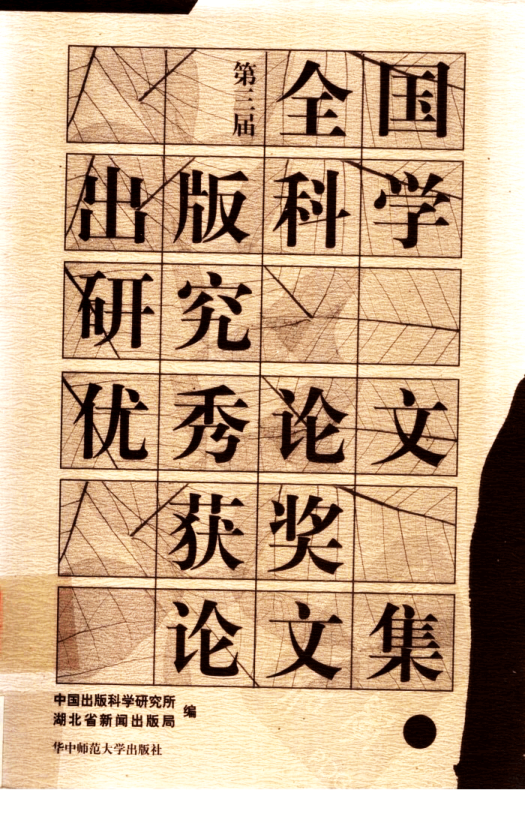 第三届
全国
出版科学
研究
优秀论文
获奖
论文集
中国出版科学研究所
湖北省新闻出版局
编
华中师范大学出版社